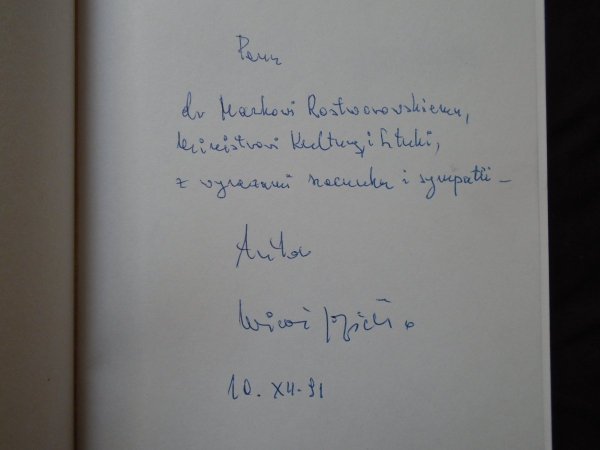 Panu
dr Markowi Rostworowskiemu,
Ministrowi Kultury i Sztuki,
z wyrazami szacunku i sympatii –
Autor
10. XII. 91